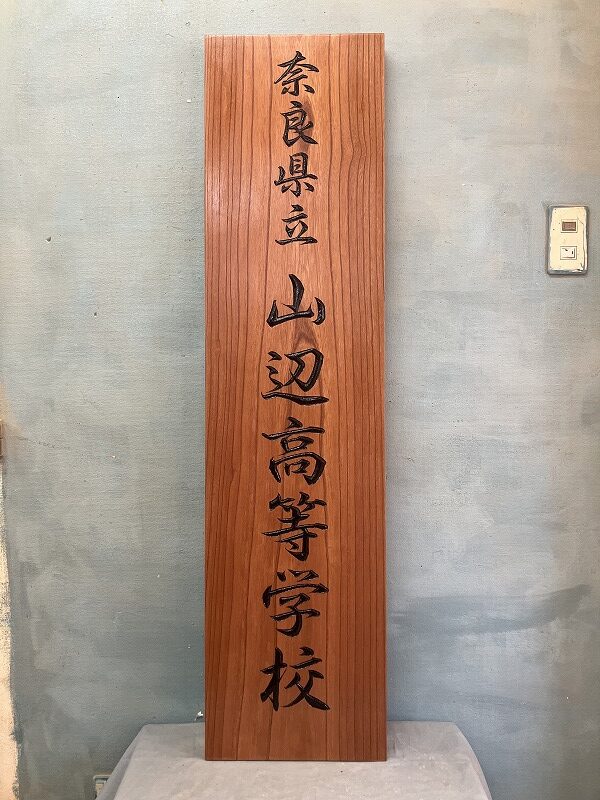 奈良県立 山辺高等学校